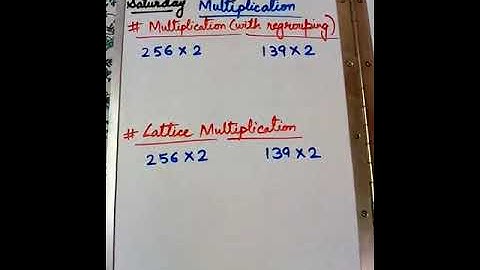 Saturday Multiplication
# Multiplication (with regrouping)
256 × 2 139 × 2
# Lattice Multiplication
256 × 2 139 × 2